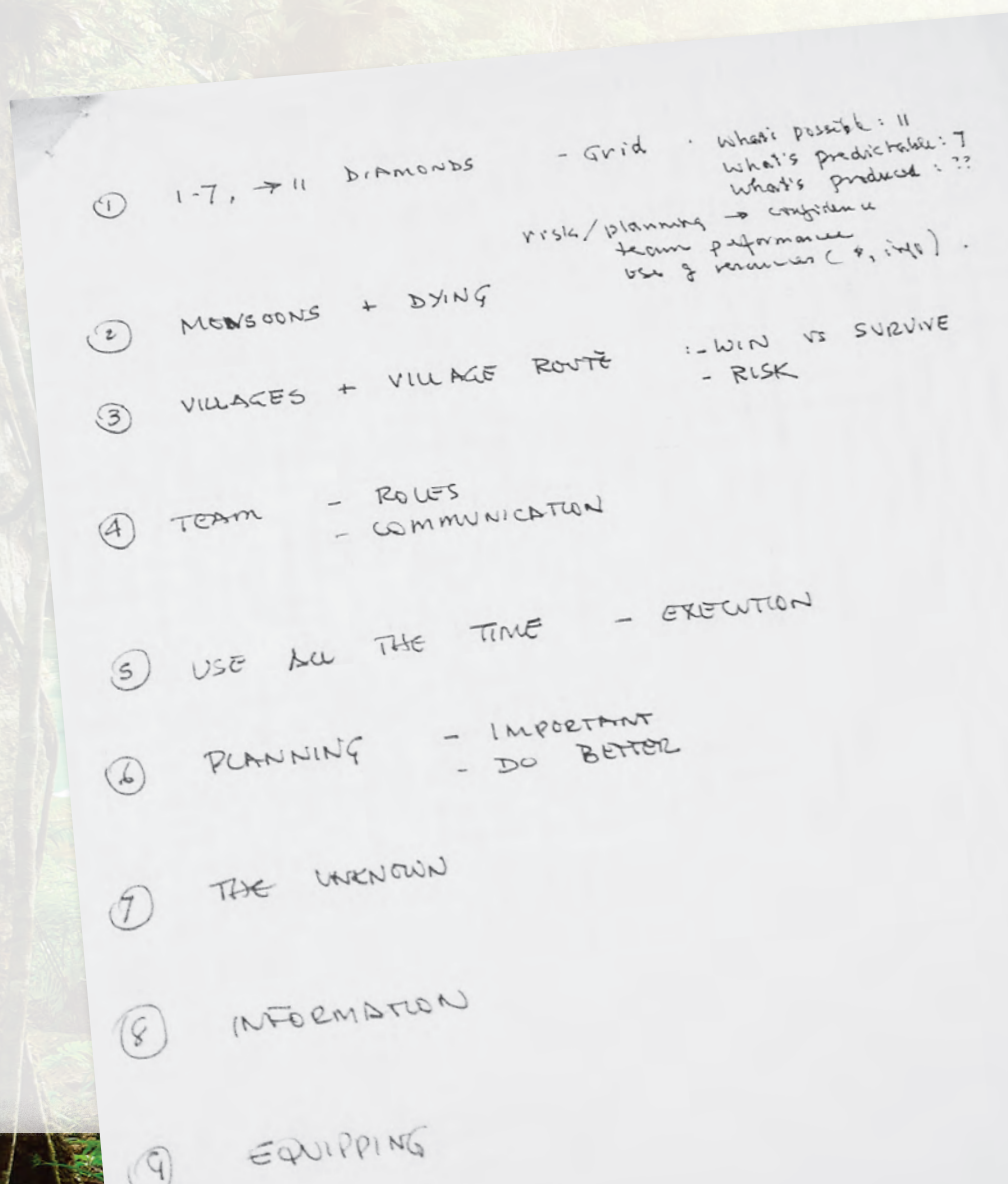 ① 1-7, → 11 DIAMONDS - Grid · What's possible : 11
what's predictable : 7
what's produced : ??
risk/planning → confidence
team peformance
use of resources ( $, info ) .
② MONSOONS + DYING
③ VILLAGES + VILLAGE ROUTE :- WIN VS SURVIVE
- RISK
④ TEAM - ROLES
- COMMUNICATION
⑤ USE ALL THE TIME - EXECUTION
⑥ PLANNING - IMPORTANT
- DO BETTER
⑦ THE UNKNOWN
⑧ INFORMATION
⑨ EQUIPPING